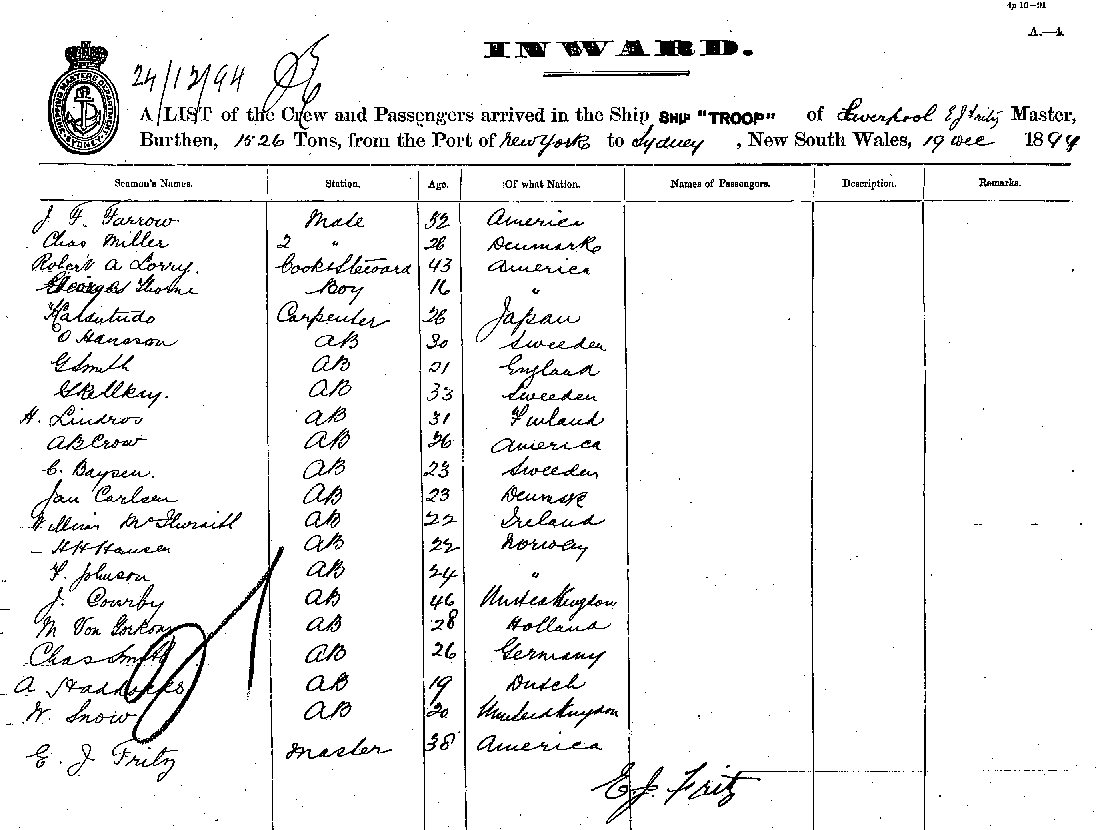 4p 10—91
A.—4.
INWARD.
SHIPPING MASTER'S DEPARTMENT SYDNEY
24/12/94
A LIST of the Crew and Passengers arrived in the Ship SHIP "TROOP" of Liverpool E J Fritz Master,
Burthen, 1526 Tons, from the Port of New York to Sydney, New South Wales, 19 Dec 1894
Seamon's Names. Station. Age. Of what Nation. Names of Passengers. Description. Remarks.
J. F. Farrow Mate 32 America
Chas Miller 2 " 28 Denmark
Robert A Lorry. Cook & Steward 43 America
Thorne Boy 16 "
Katsutudo Carpenter 28 Japan
O Hansson AB 30 Sweeden
G Smith AB 21 England
AB 33 Sweeden
H. Lindros AB 31 Finland
AB Crow AB 26 America
C. Baysen. AB 23 Sweeden
Jan Carlsen AB 23 Denmsk
William McIlwraith AB 22 Ireland
– H H Hansen AB 22 Norway
F. Johnson AB 24 "
J. Courby AB 46 United Kingdom
M Von Gorkom AB 28 Holland
Chas Smith AB 26 Germany
A AB 19 Dutsch
W. Snow AB 20 United Kingdom
E. J Fritz Master 38 America
E. J. Fritz